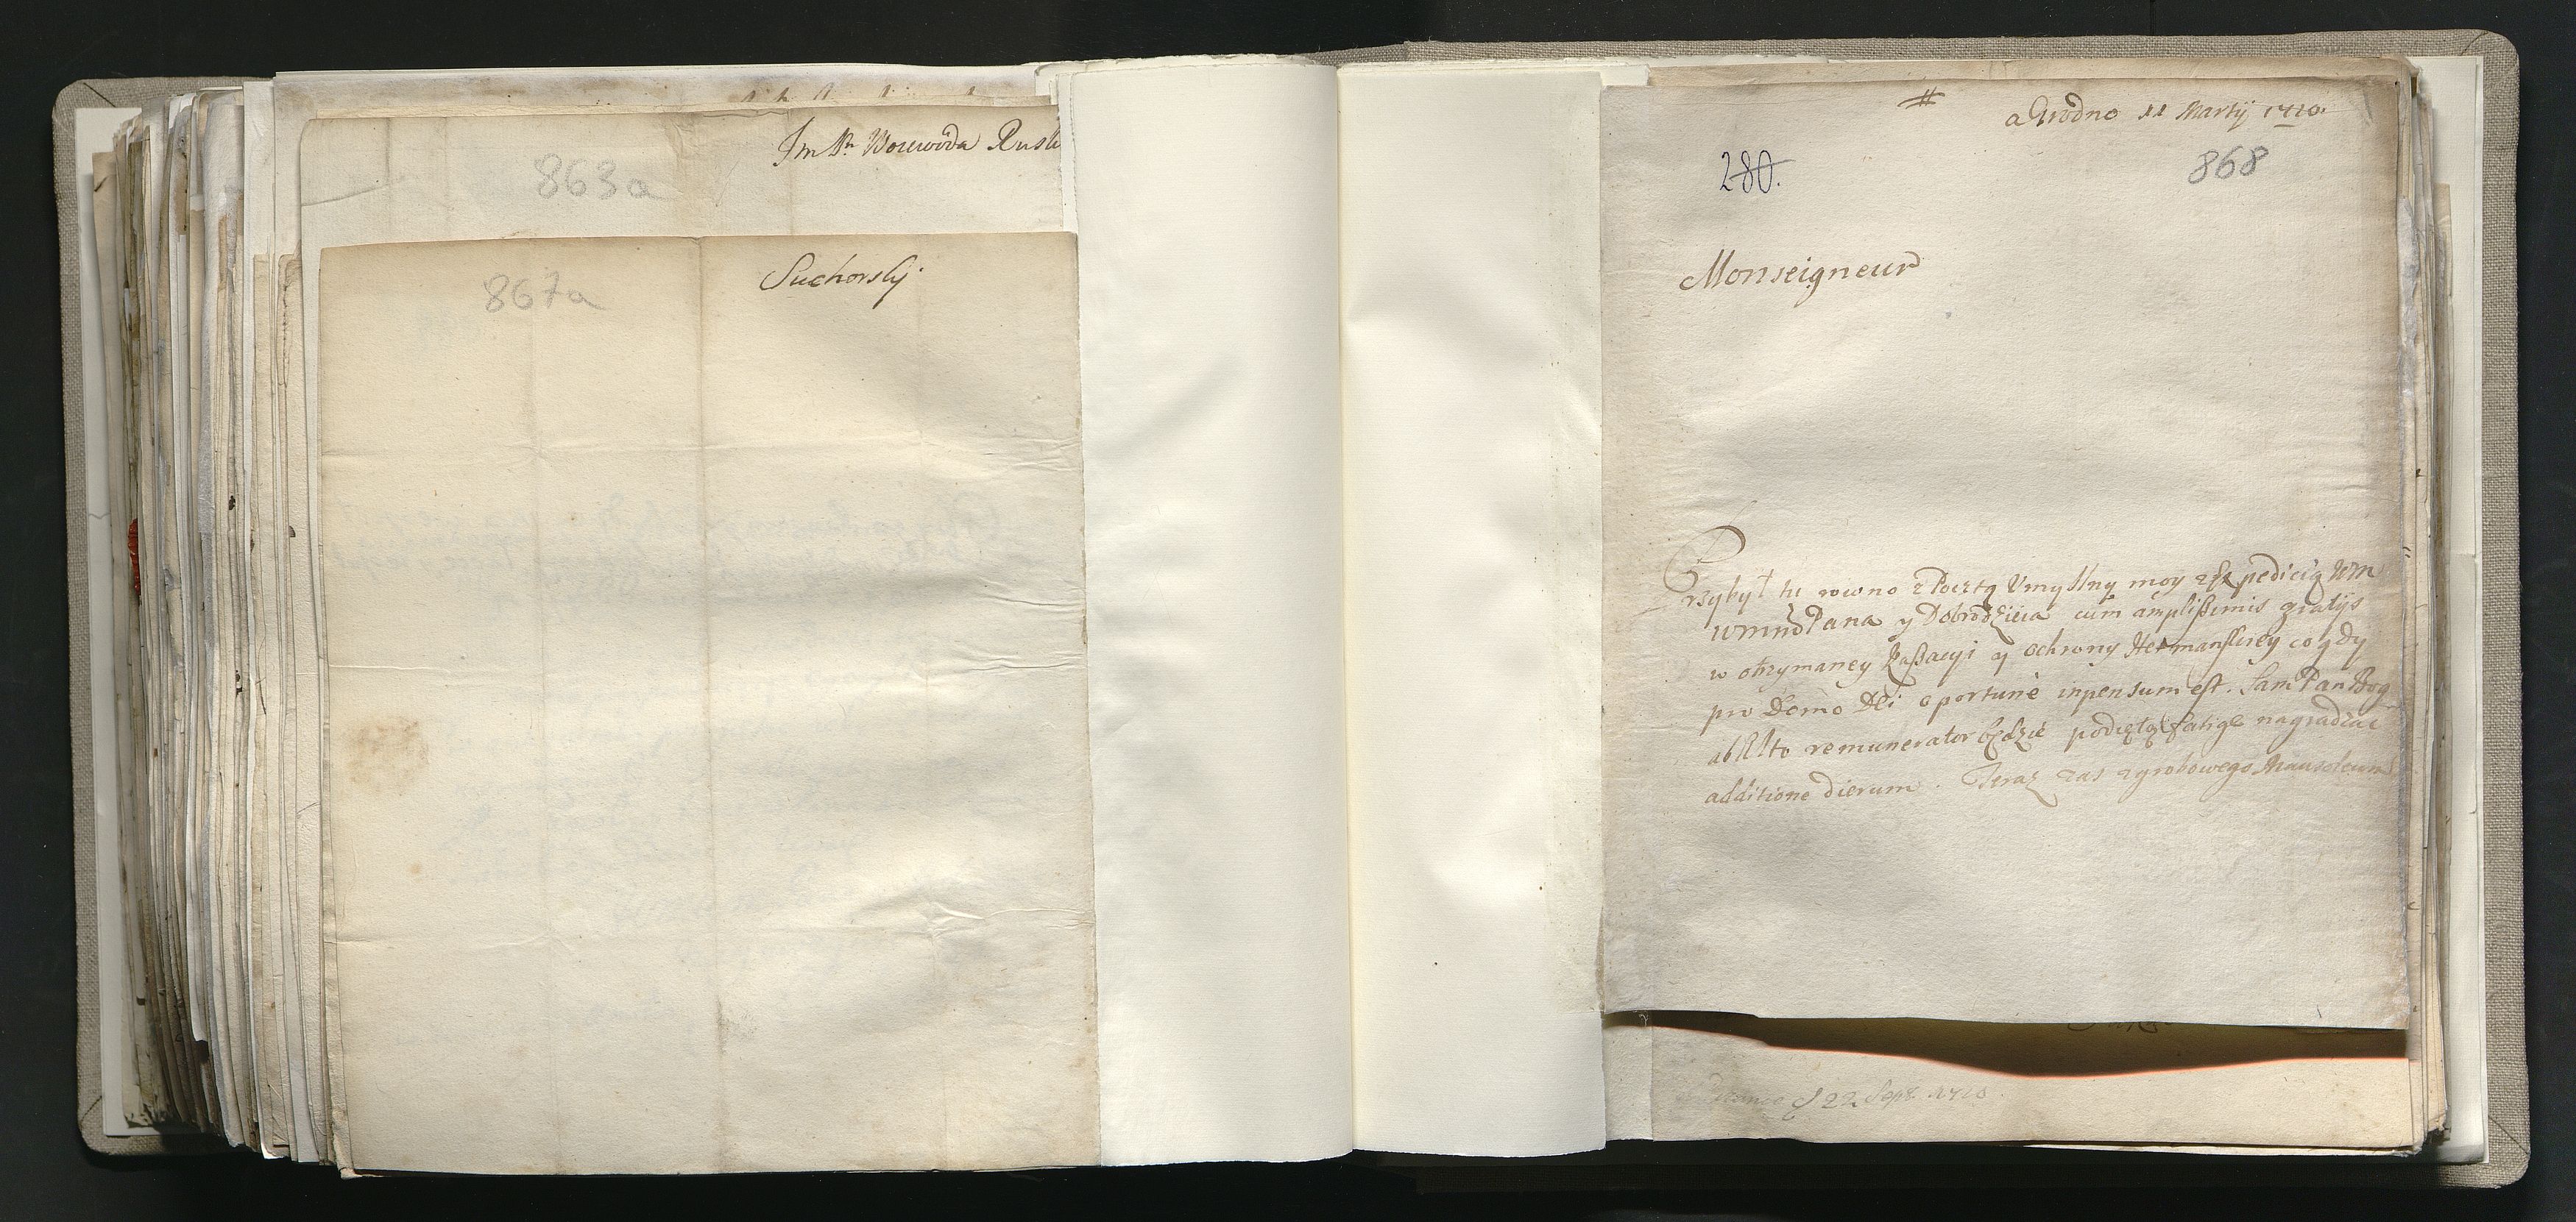 Im Pn Woiewoda Rusk
863a
867a
Suchorskij.
#
a Grodno 11 Martij 1710.
280.
868
Monseigneur
Przybył tu rowno z Pocztą Umyslny moy z Expedicią Wm
WmmoPana y Dobrodzieia cum amplissimis gratijs
w otrzymaney Kassacyi y ochrony Hetmanskiey co gdy
pro Domo Dei oportune inpensum est. Sam Pan Bog
ab Alto remunerator będzie podiętą fatigę nagradzac
additione dierum. Teraz zas z grobowego Mauzoleum
22 Sept. 1710.